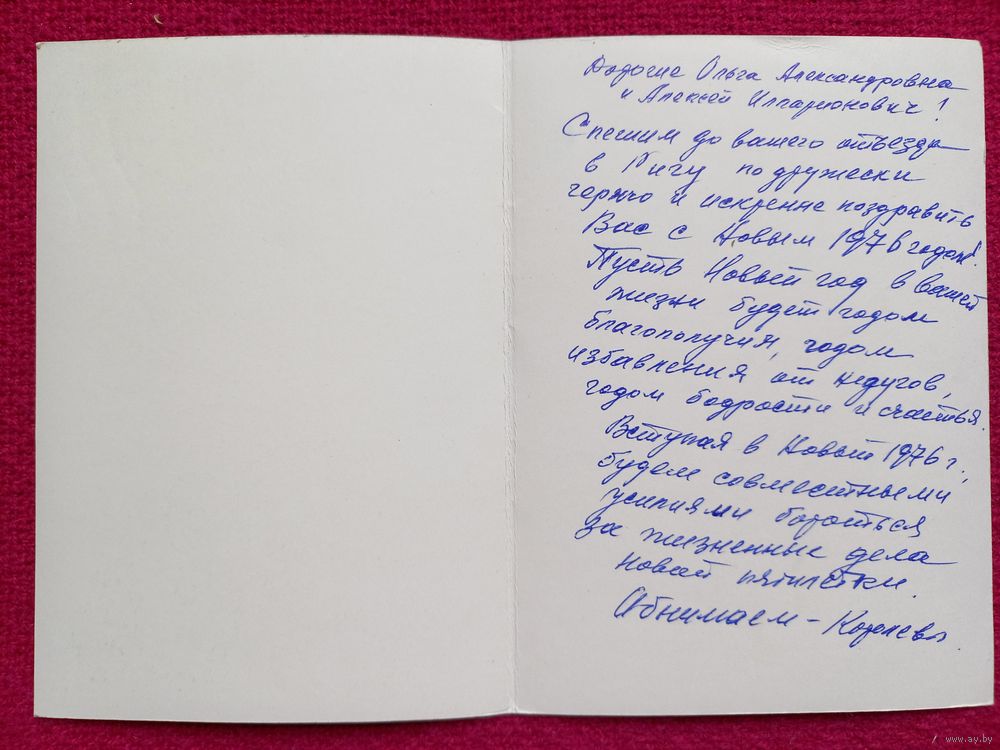 Дорогие Ольга Александровна
и Алексей Илларионович!
Спешим до вашего отъезда
в Ригу по дружески
горячо и искренне поздравить
Вас с Новым 1976 годом!
Пусть Новый год в вашей
жизни будет годом
благополучия, годом
избавления от недугов,
годом бодрости и счастья.
Вступая в Новый 1976 г.,
будем совместными
усилиями бороться
за жизненные дела
новой пятилетки.
Обнимаем –
www.ay.by